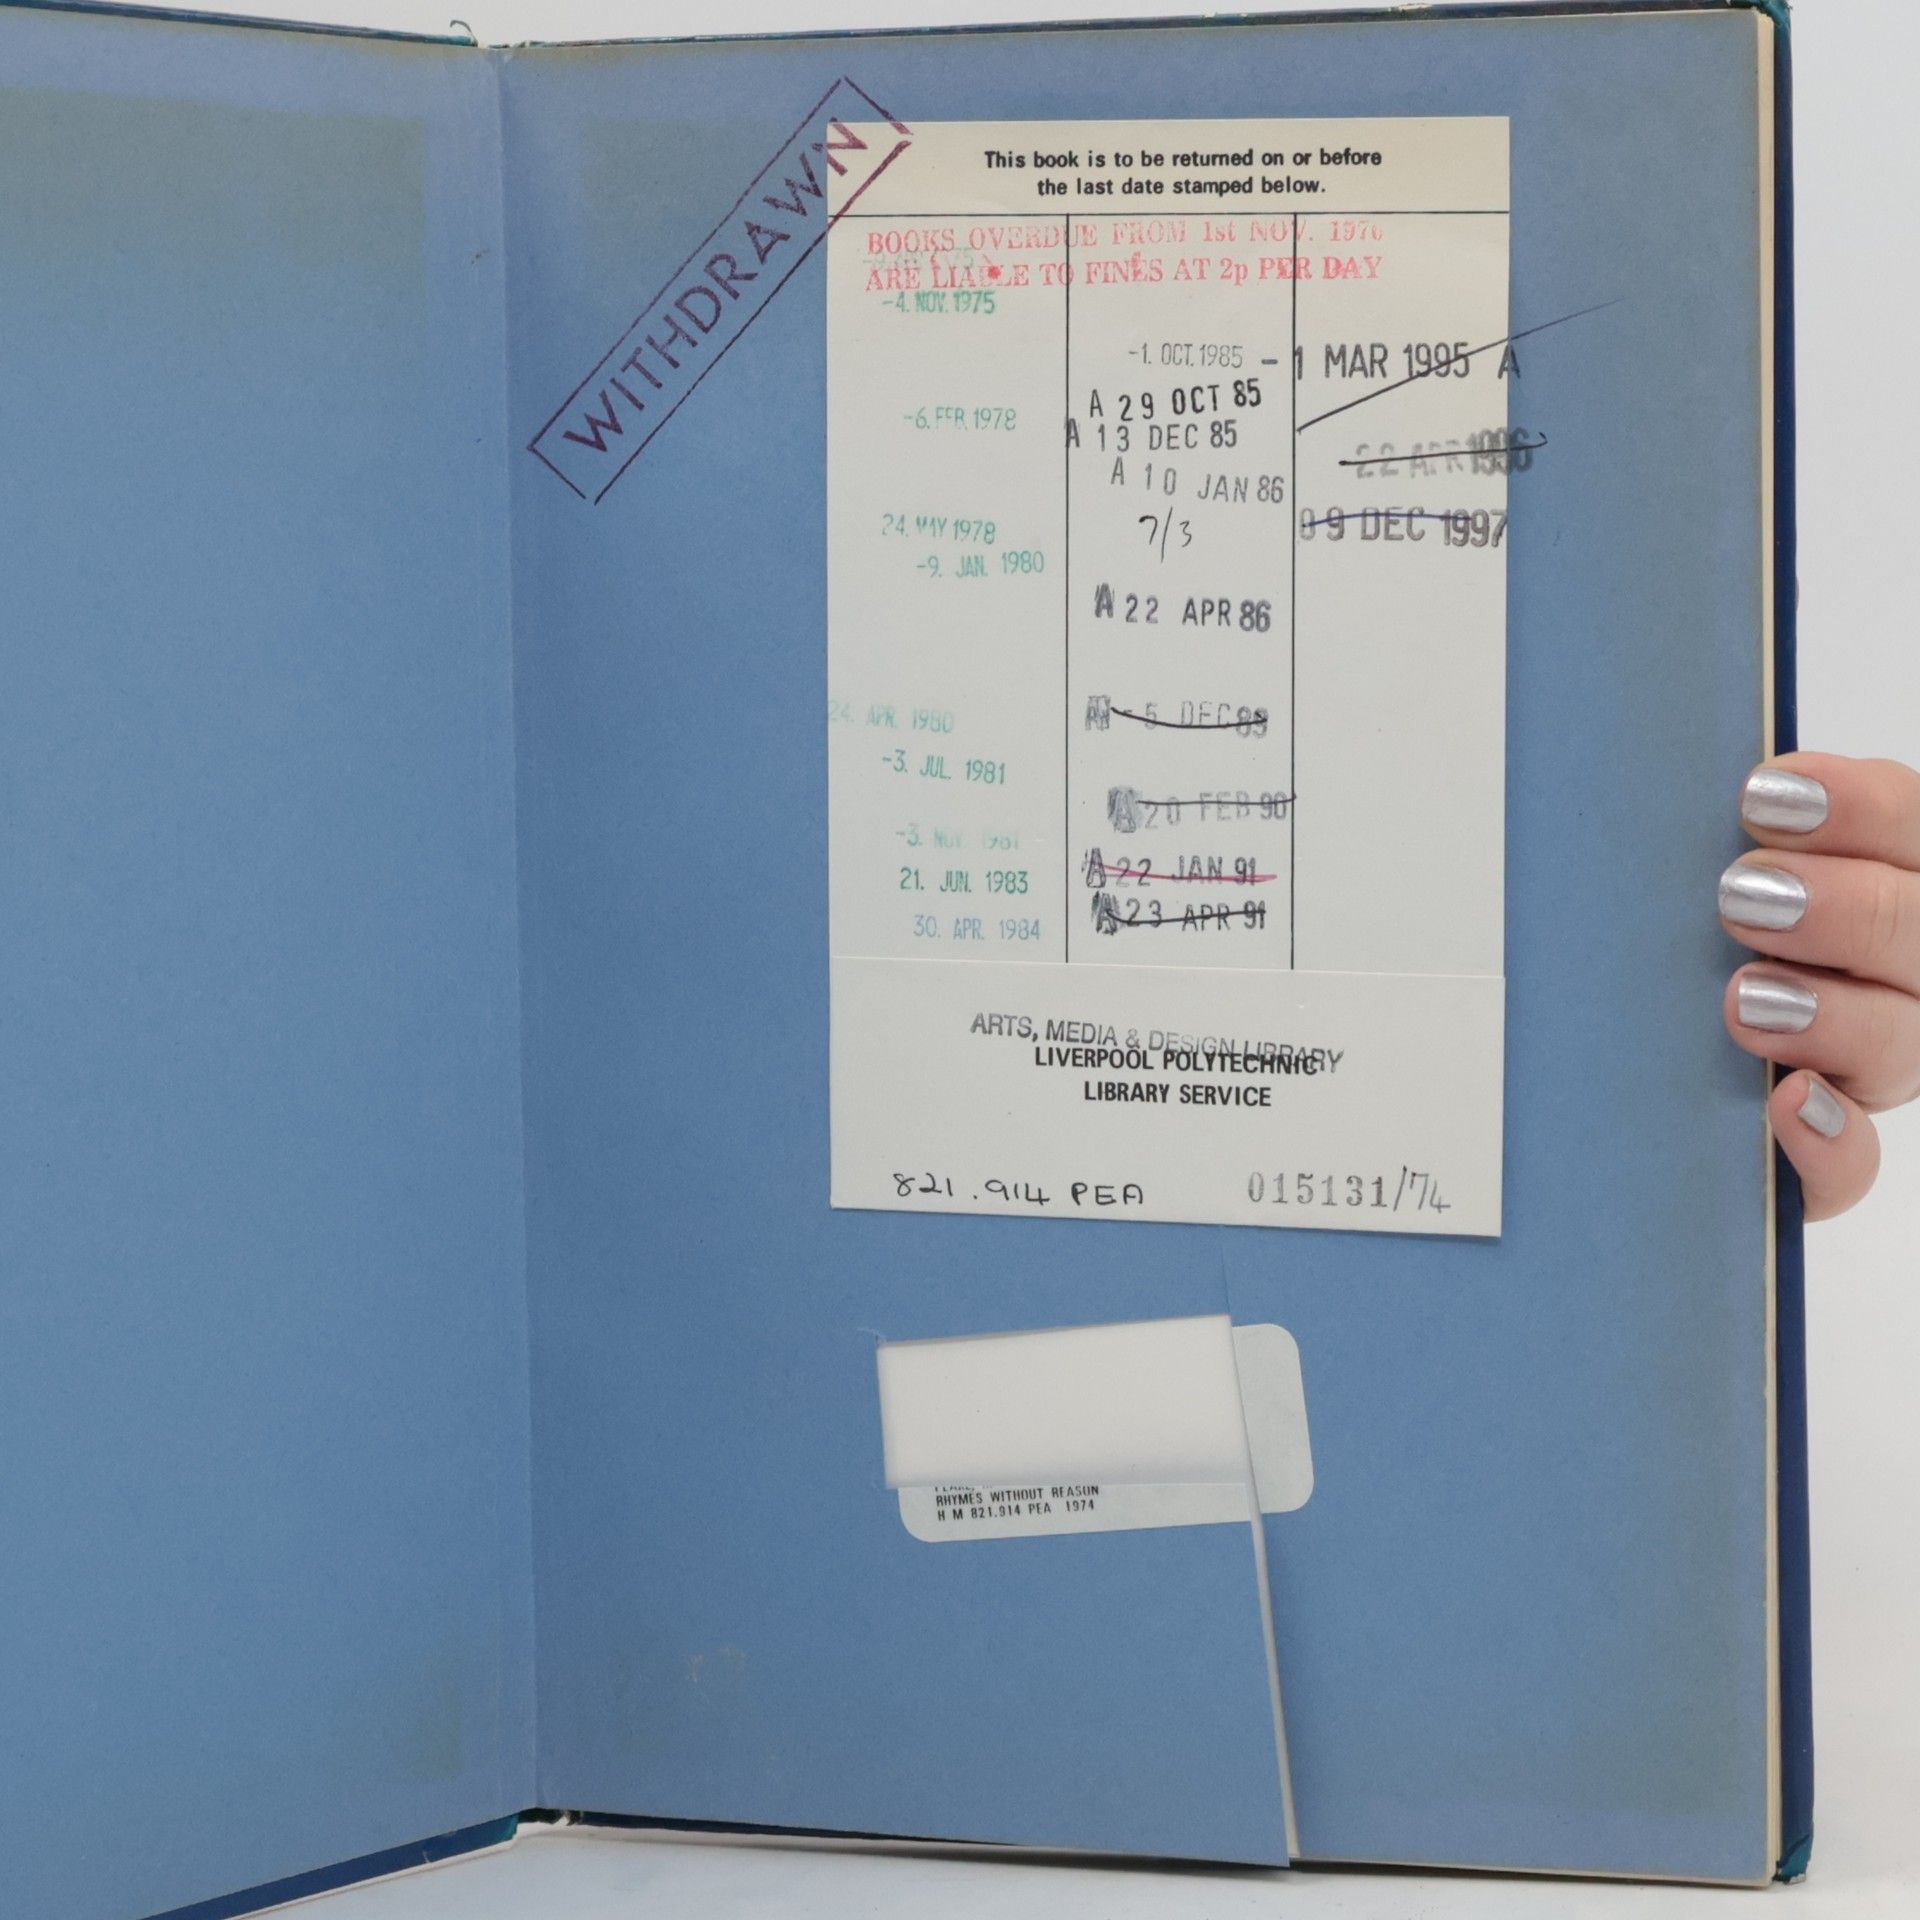 WITHDRAWN
This book is to be returned on or before
the last date stamped below.
BOOKS OVERDUE FROM 1st NOV. 1976
ARE LIABLE TO FINES AT 2p PER DAY
-4. NOV. 1975
-6. FEB. 1978
24. MAY 1978
-9. JAN. 1980
24. APR. 1980
-3. JUL. 1981
-3. NOV. 1981
21. JUN. 1983
30. APR. 1984
-1. OCT. 1985
A 29 OCT 85
A 13 DEC 85
A 10 JAN 86
7/3
A 22 APR 86
A - 5 DEC 89
A 20 FEB 90
A 22 JAN 91
A 23 APR 91
- 1 MAR 1995 A
22 APR 1996
09 DEC 1997
ARTS, MEDIA & DESIGN LIBRARY
LIVERPOOL POLYTECHNIC
LIBRARY SERVICE
821.914 PEA 015131/74
RHYMES WITHOUT REASON
H M 821.914 PEA 1974